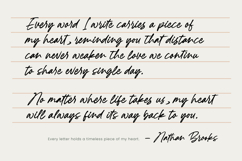 Every word I write carries a piece of
my heart, reminding you that distance
can never weaken the love we continu
to share every single day.
No matter where life takes us, my heart
will always find its way back to you.
Every letter holds a timeless piece of my heart. - Nathan Brooks